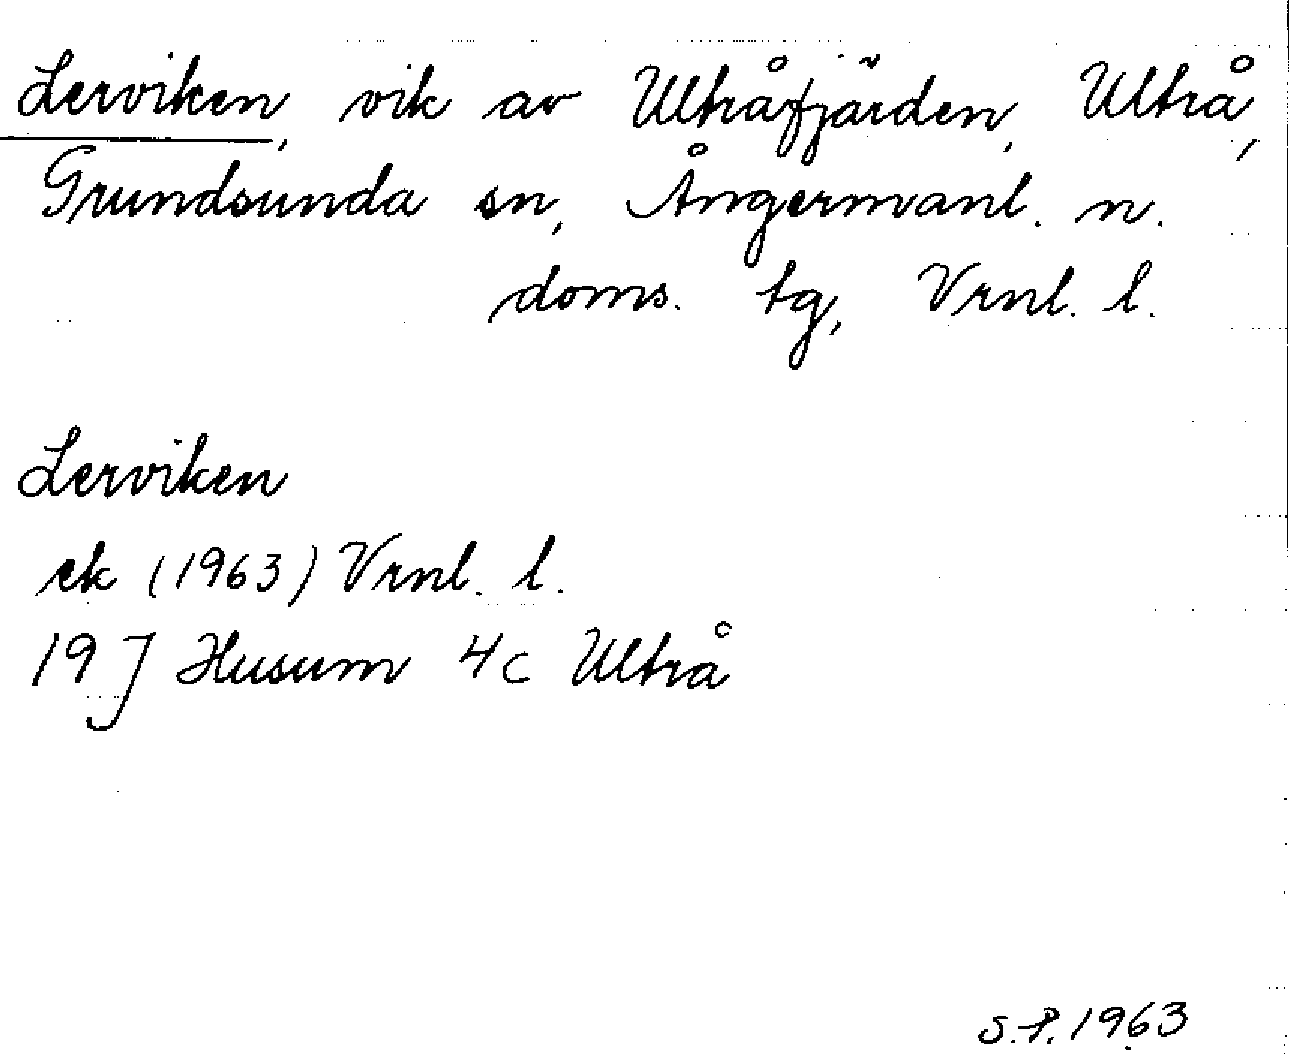 Lerviken, vik av Ultråfjärden, Ultrå,
Grundsunda sn, Ångermanl. n.
doms. tg, Vrnl. l.
Lerviken
ek (1963) Vrnl. l.
19 J Husum 4c Ultrå
S.P. 1963